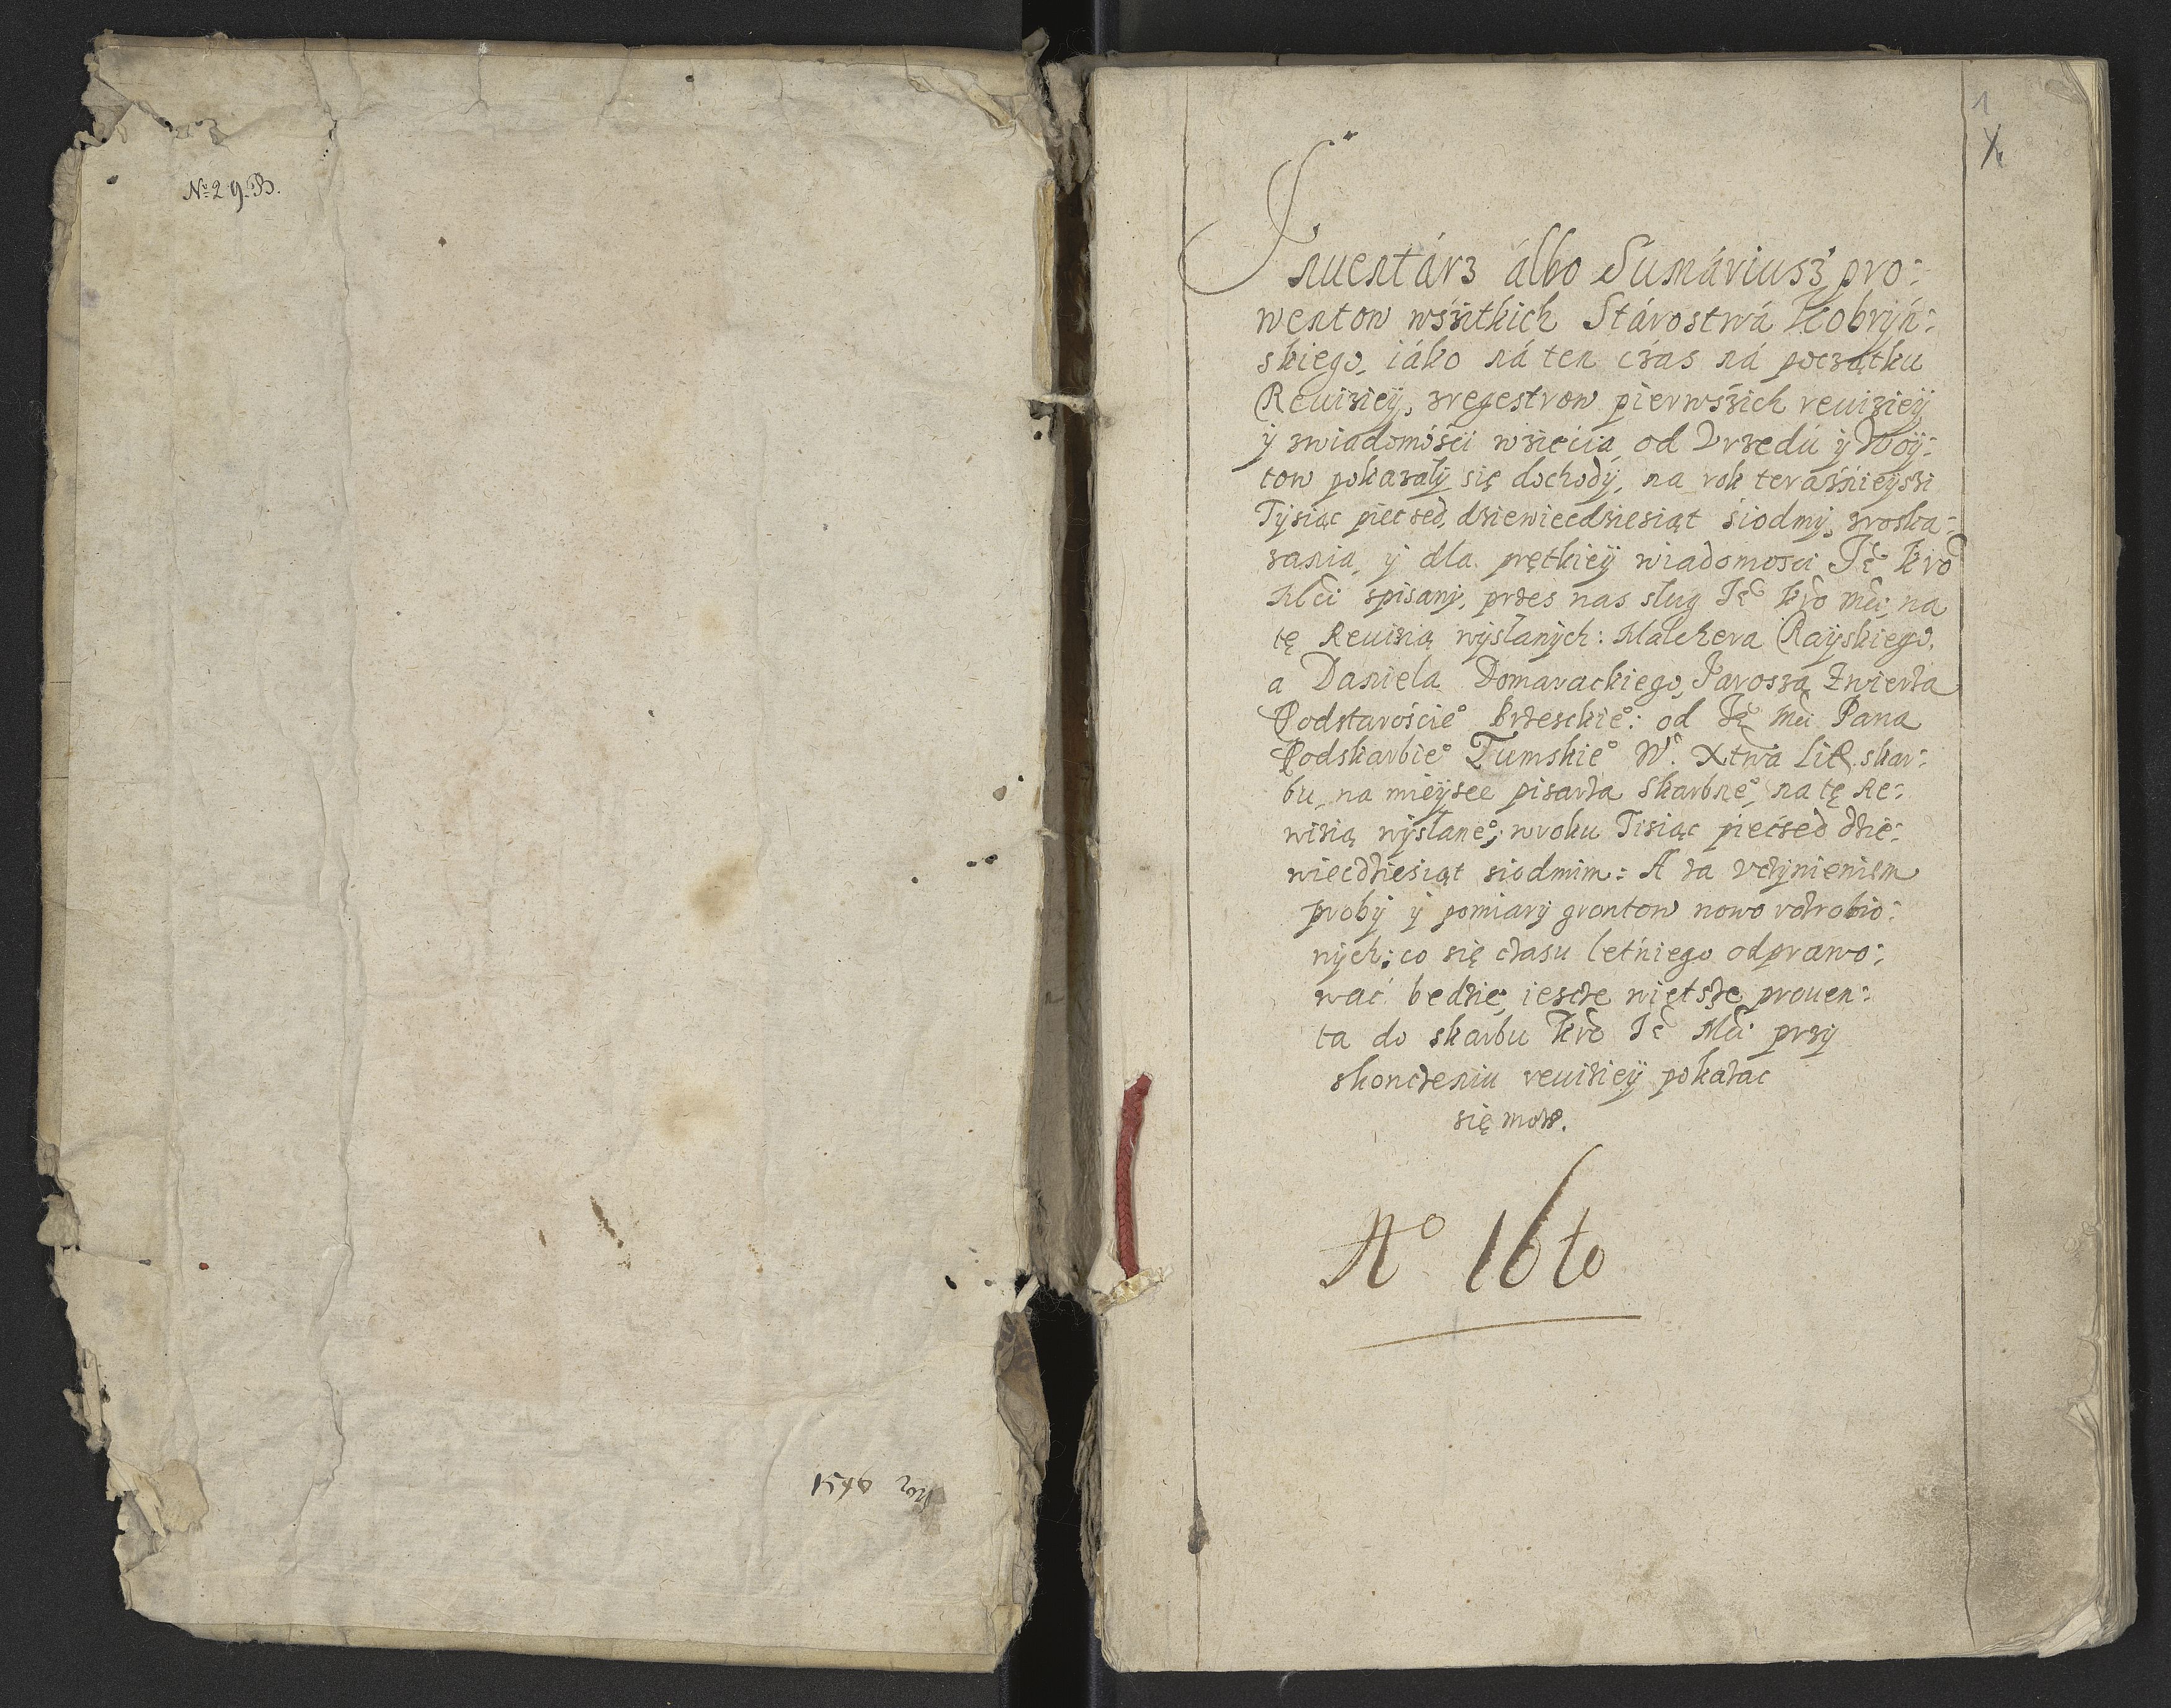 № 29.B.
1546
1
Inuentárz álbo Sumáriusz pro:
wentow wśźitkich Stárostwá Kobrÿń:
skiego, iáko ná ten czas ná początku
Reuizieÿ, zregestrow pierwśzich reuizieÿ
ÿ zwiadomósći wzięcia, od Vrzedu ÿ Woÿ:
tow pokazalÿ się dochodÿ, na rok teraźnieÿszi
Tÿsiąc piecsed, dziewiecdziesiąt siodmÿ, zroska:
zania, ÿ dla prętkieÿ wiadomosci Je͠ Kro͠
Mc͠i spisanÿ, przes nas slug Je͠ Kro͠ mc͠i na
tę Reuizią wÿsłanÿch: Malchera Raÿskiego,
a Daniela Domarackiego, Jarosza Zwierza
Podstarosćie° Brzeskie°: od Je͠ mc͠i Pana
Podskarbie° Zumskie° W°. Xtwa Lit. skar:
bu, na mieÿsce pisarza Skarbne°, na tę Re:
wizią wÿslane°, wroku Tisiąc piećsed dzie:
wiecdziesiąt siodmim: A za vczÿnieniem
probÿ ÿ pomiarÿ grontow nowo rozrobio:
nÿch: co się czasu letniego odprawo:
wać bedzie, iescze więtsze prouen:
ta do skarbu Kro͠ Je͠ Mc͠i przÿ
skonczeniu reuizieÿ pokazac
się moze.
A° 16to